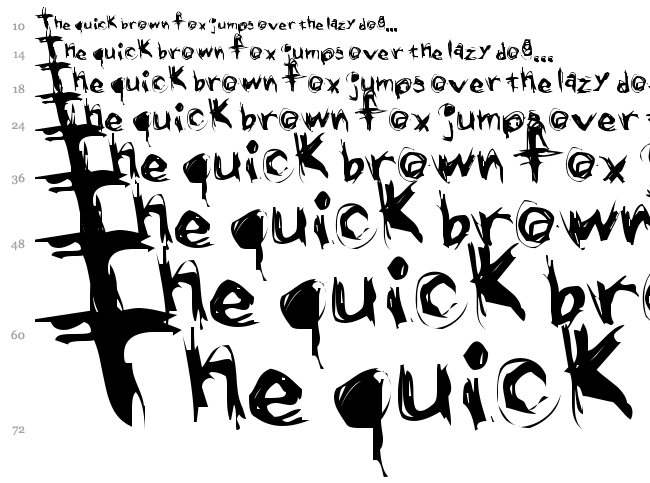 10 The quick brown fox jumps over the lazy dog...
14 The quick brown fox jumps over the lazy dog...
18 The quick brown fox jumps over the lazy do
24 The quick brown fox jumps over
36 The quick brown fox
48 The quick brown
60 The quick bro
72 The quick